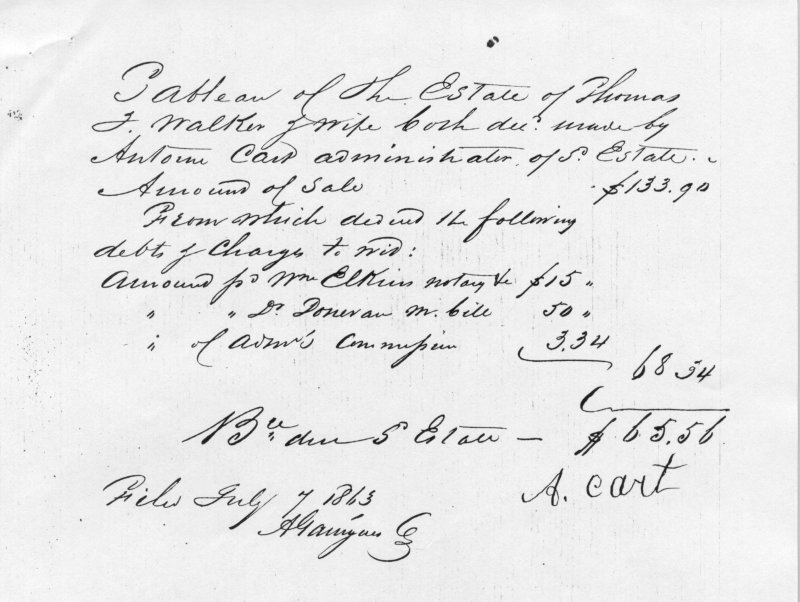 Tableau of the Estate of Thomas
J. Walker & Wife both decd. made by
Antoine Cart administrator of sd. Estate.
Amount of Sale $133.90
From which deduct the following
debts & Charges to wit:
Amount pd Wm Elkins notary &c $15 "
" " Dr Donevan m. bill 50 "
" of Admr's Commission 3.34
68 34
Bce due sd Estate — $65.56
Filed July 7 1863
A. Cart